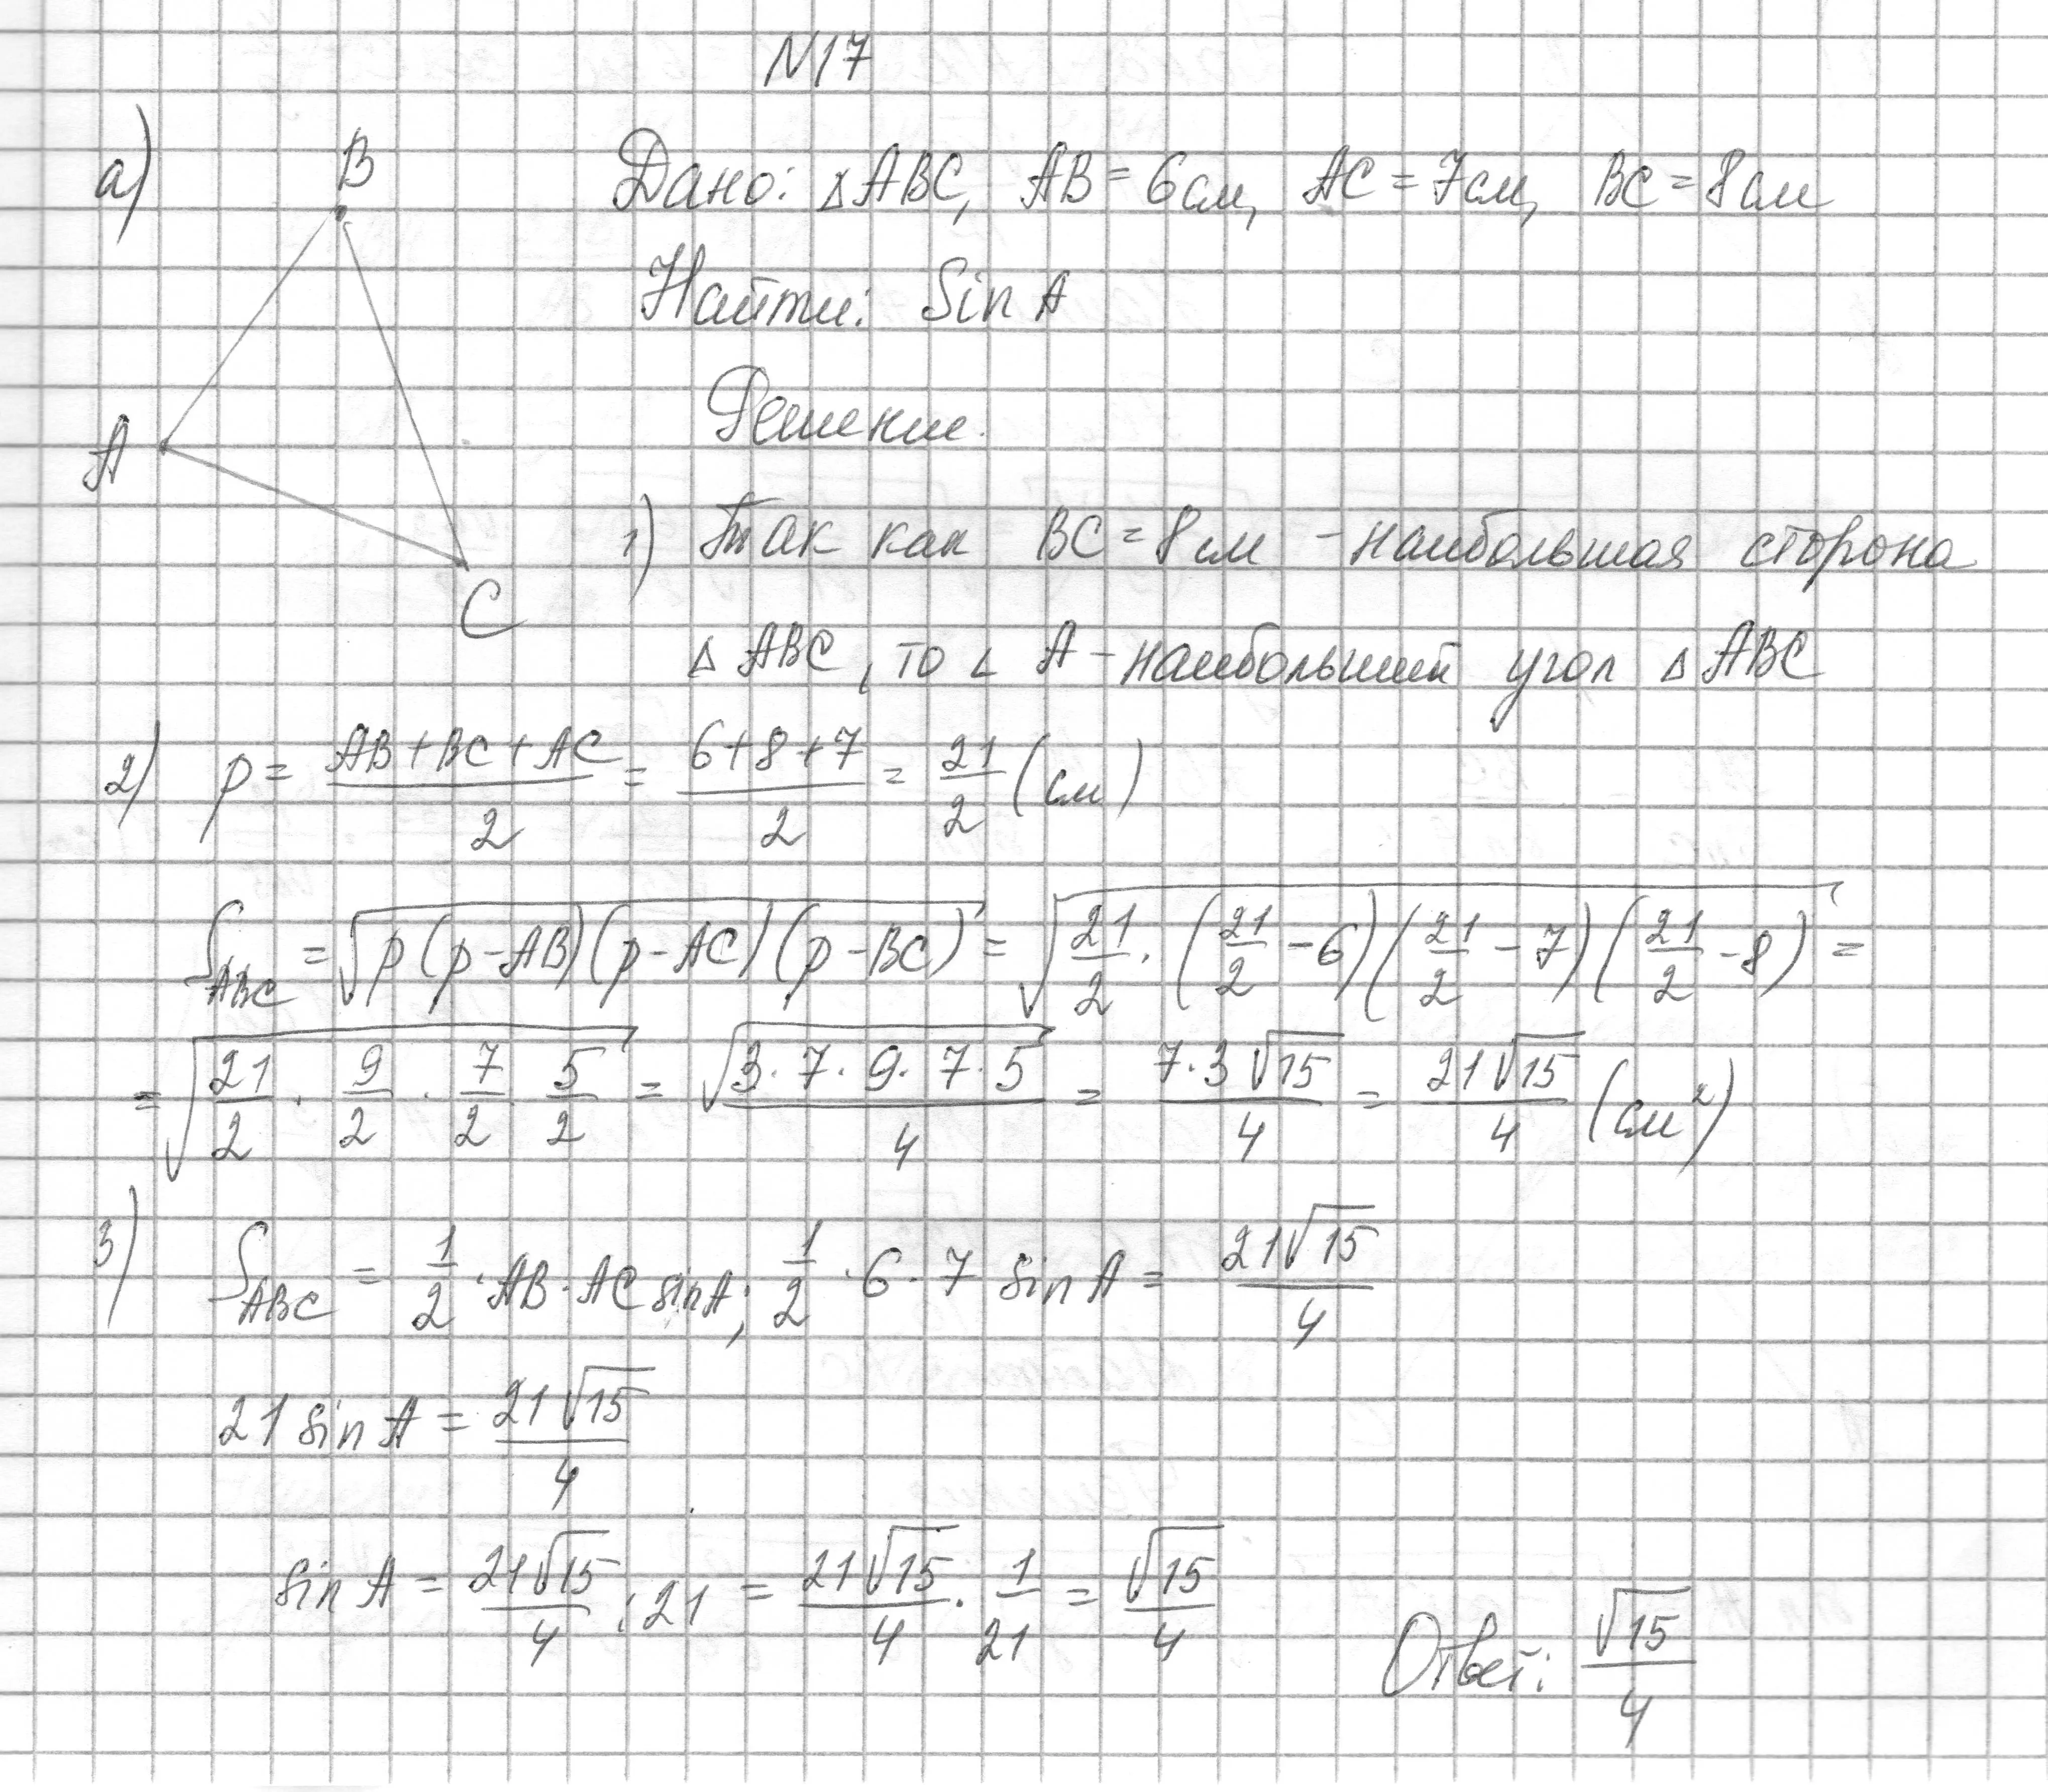 N17
а)
B
A
C
Дано: △ABC, AB = 6см, AC = 7см, BC = 8см
Найти: Sin A
Решение.
1) Так как BC = 8см - наибольшая сторона
△ ABC, то ∠ A - наибольший угол △ ABC
2) p = (AB+BC+AC)/2 = (6+8+7)/2 = 21/2 (см)
S_ABC = √(p(p-AB)(p-AC)(p-BC)) = √(21/2 · (21/2 - 6)(21/2 - 7)(21/2 - 8)) =
= √(21/2 · 9/2 · 7/2 · 5/2) = √(3·7·9·7·5)/4 = 7·3√15/4 = 21√15/4 (см²)
3) S_ABC = 1/2 · AB · AC sin A; 1/2 · 6 · 7 sin A = 21√15/4
21 sin A = 21√15/4
sin A = 21√15/4 : 21 = 21√15/4 · 1/21 = √15/4
Ответ: √15/4